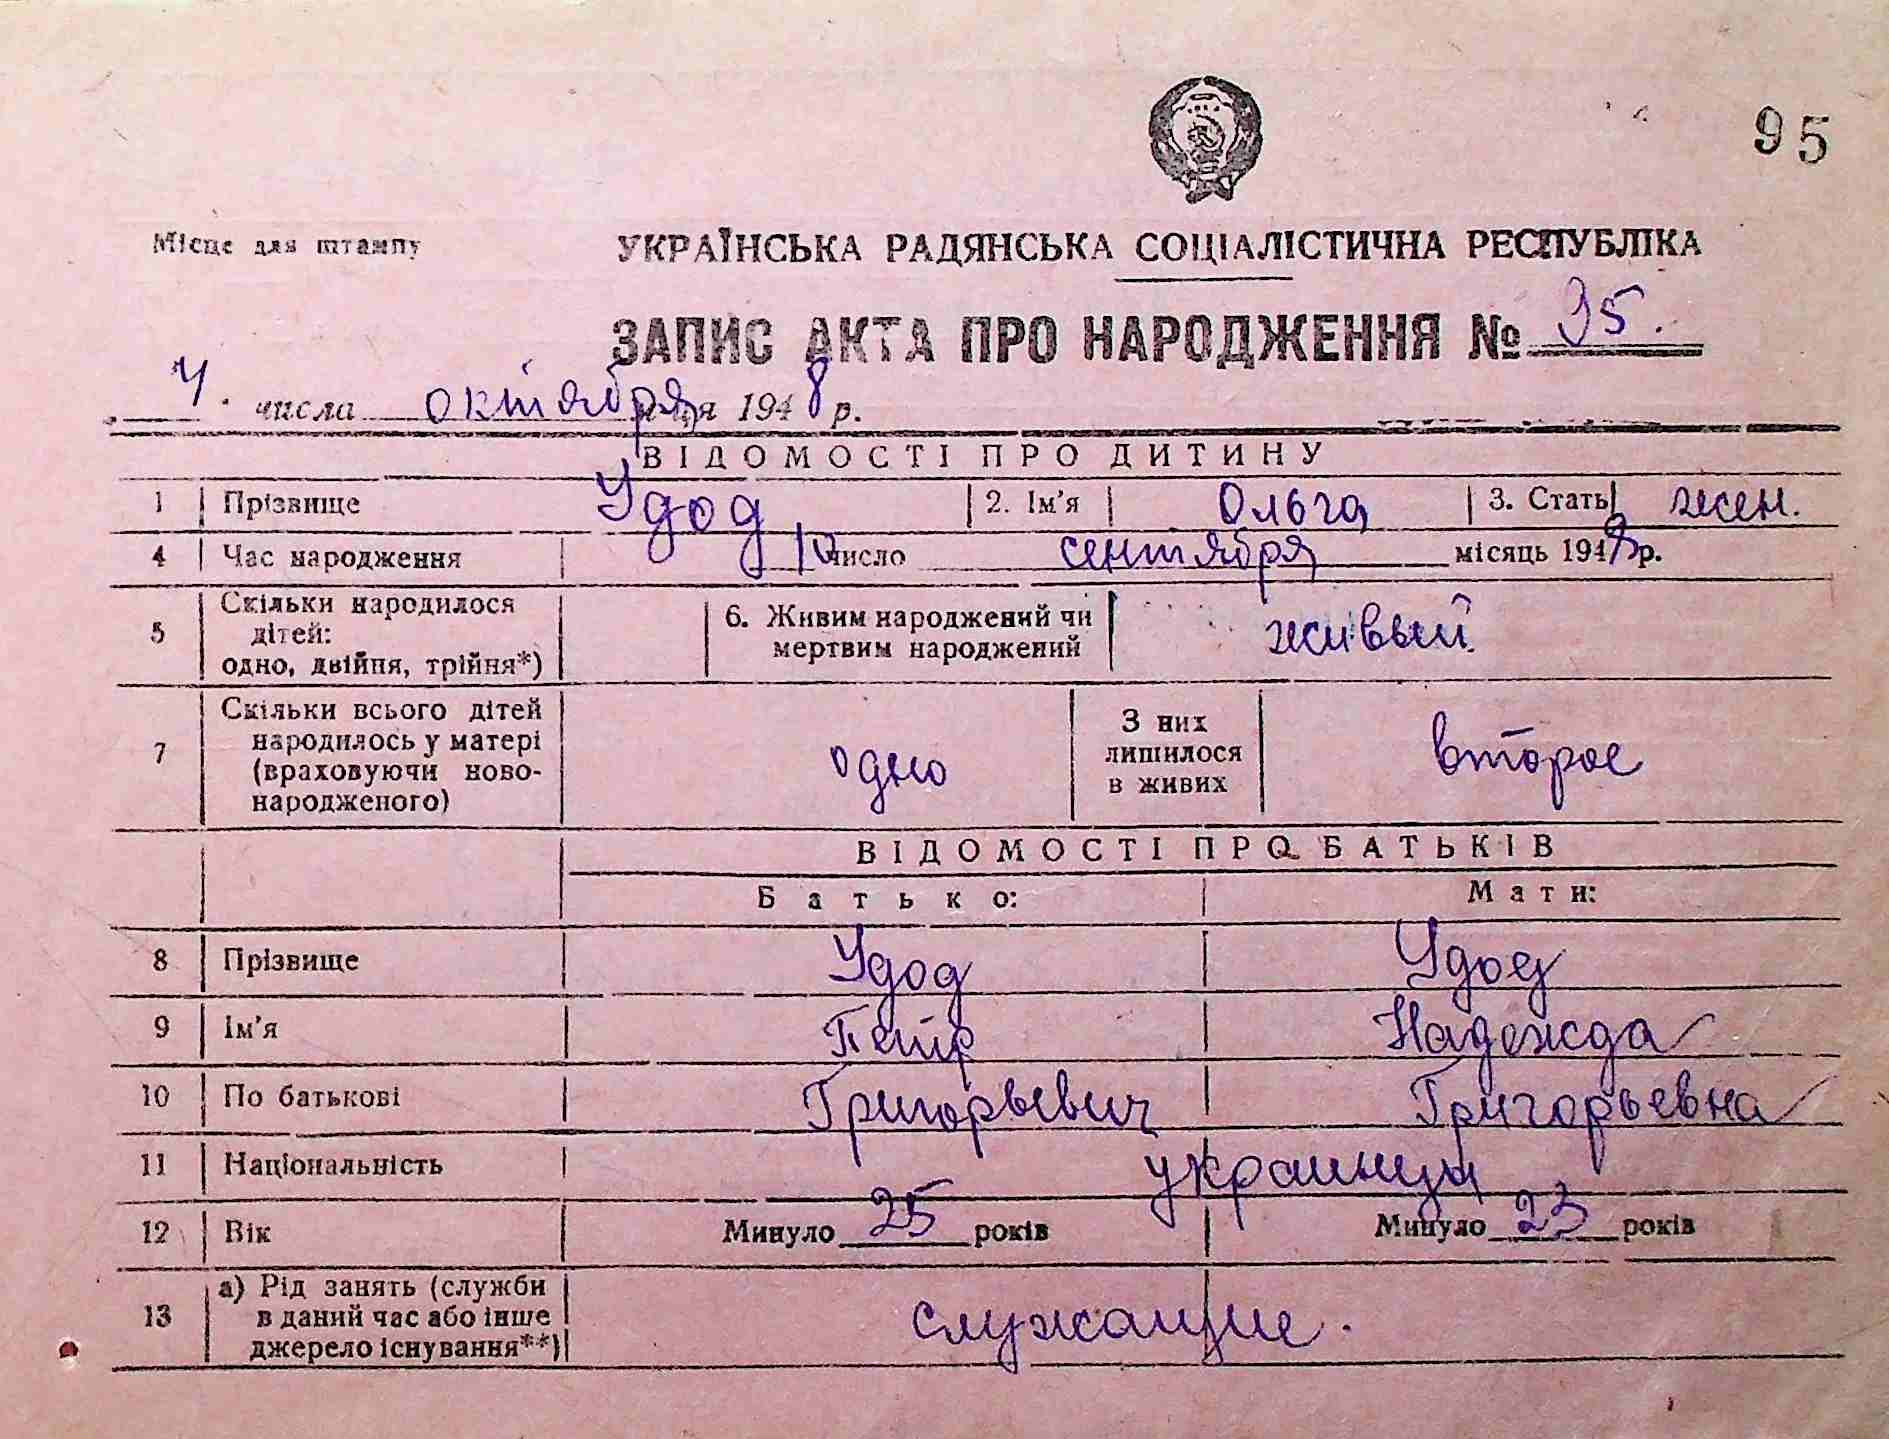 95
Місце для штампу
УКРАЇНСЬКА РАДЯНСЬКА СОЦІАЛІСТИЧНА РЕСПУБЛІКА
ЗАПИС АКТА ПРО НАРОДЖЕННЯ № 95.
числа октября м-ця 1948 р.
ВІДОМОСТІ ПРО ДИТИНУ
1 Прізвище Удод 2. Ім'я Ольга 3. Стать жен.
4 Час народження 10 число сентября місяць 1948 р.
5 Скільки народилося дітей: одно, двійня, трійня*) 6. Живим народжений чи мертвим народжений живый
7 Скільки всього дітей народилось у матері (враховуючи ново-народженого) одно З них лишилося в живих второе
ВІДОМОСТІ ПРО БАТЬКІВ
Батько: Мати:
8 Прізвище Удод Удод
9 Ім'я Петр Надежда
10 По батькові Григорьевич Григорьевна
11 Національність украинцы
12 Вік Минуло 25 років Минуло 23 років
13 а) Рід занять (служби в даний час або інше джерело існування**) служащие.